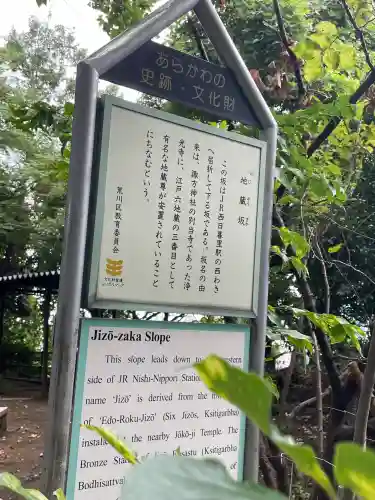 あらかわの
史跡・文化財
地蔵坂
この坂はＪＲ西日暮里駅の西わき
へ屈折して下る坂である。坂名の由
来は、諏方神社の別当寺であった浄
光寺に、江戸六地蔵の三番目として
有名な地蔵尊が安置されていること
にちなむという。
荒川区教育委員会
Jizō-zaka Slope
This slope leads down to
western
side of JR Nishi-Nippori Station
name 'Jizō' is derived from the
of 'Edo-Roku-Jizō' (Six Jizōs, Ksitigarbha)
the nearby Jōkō-ji Temple. The
Bronze Seated
Bodhisattva